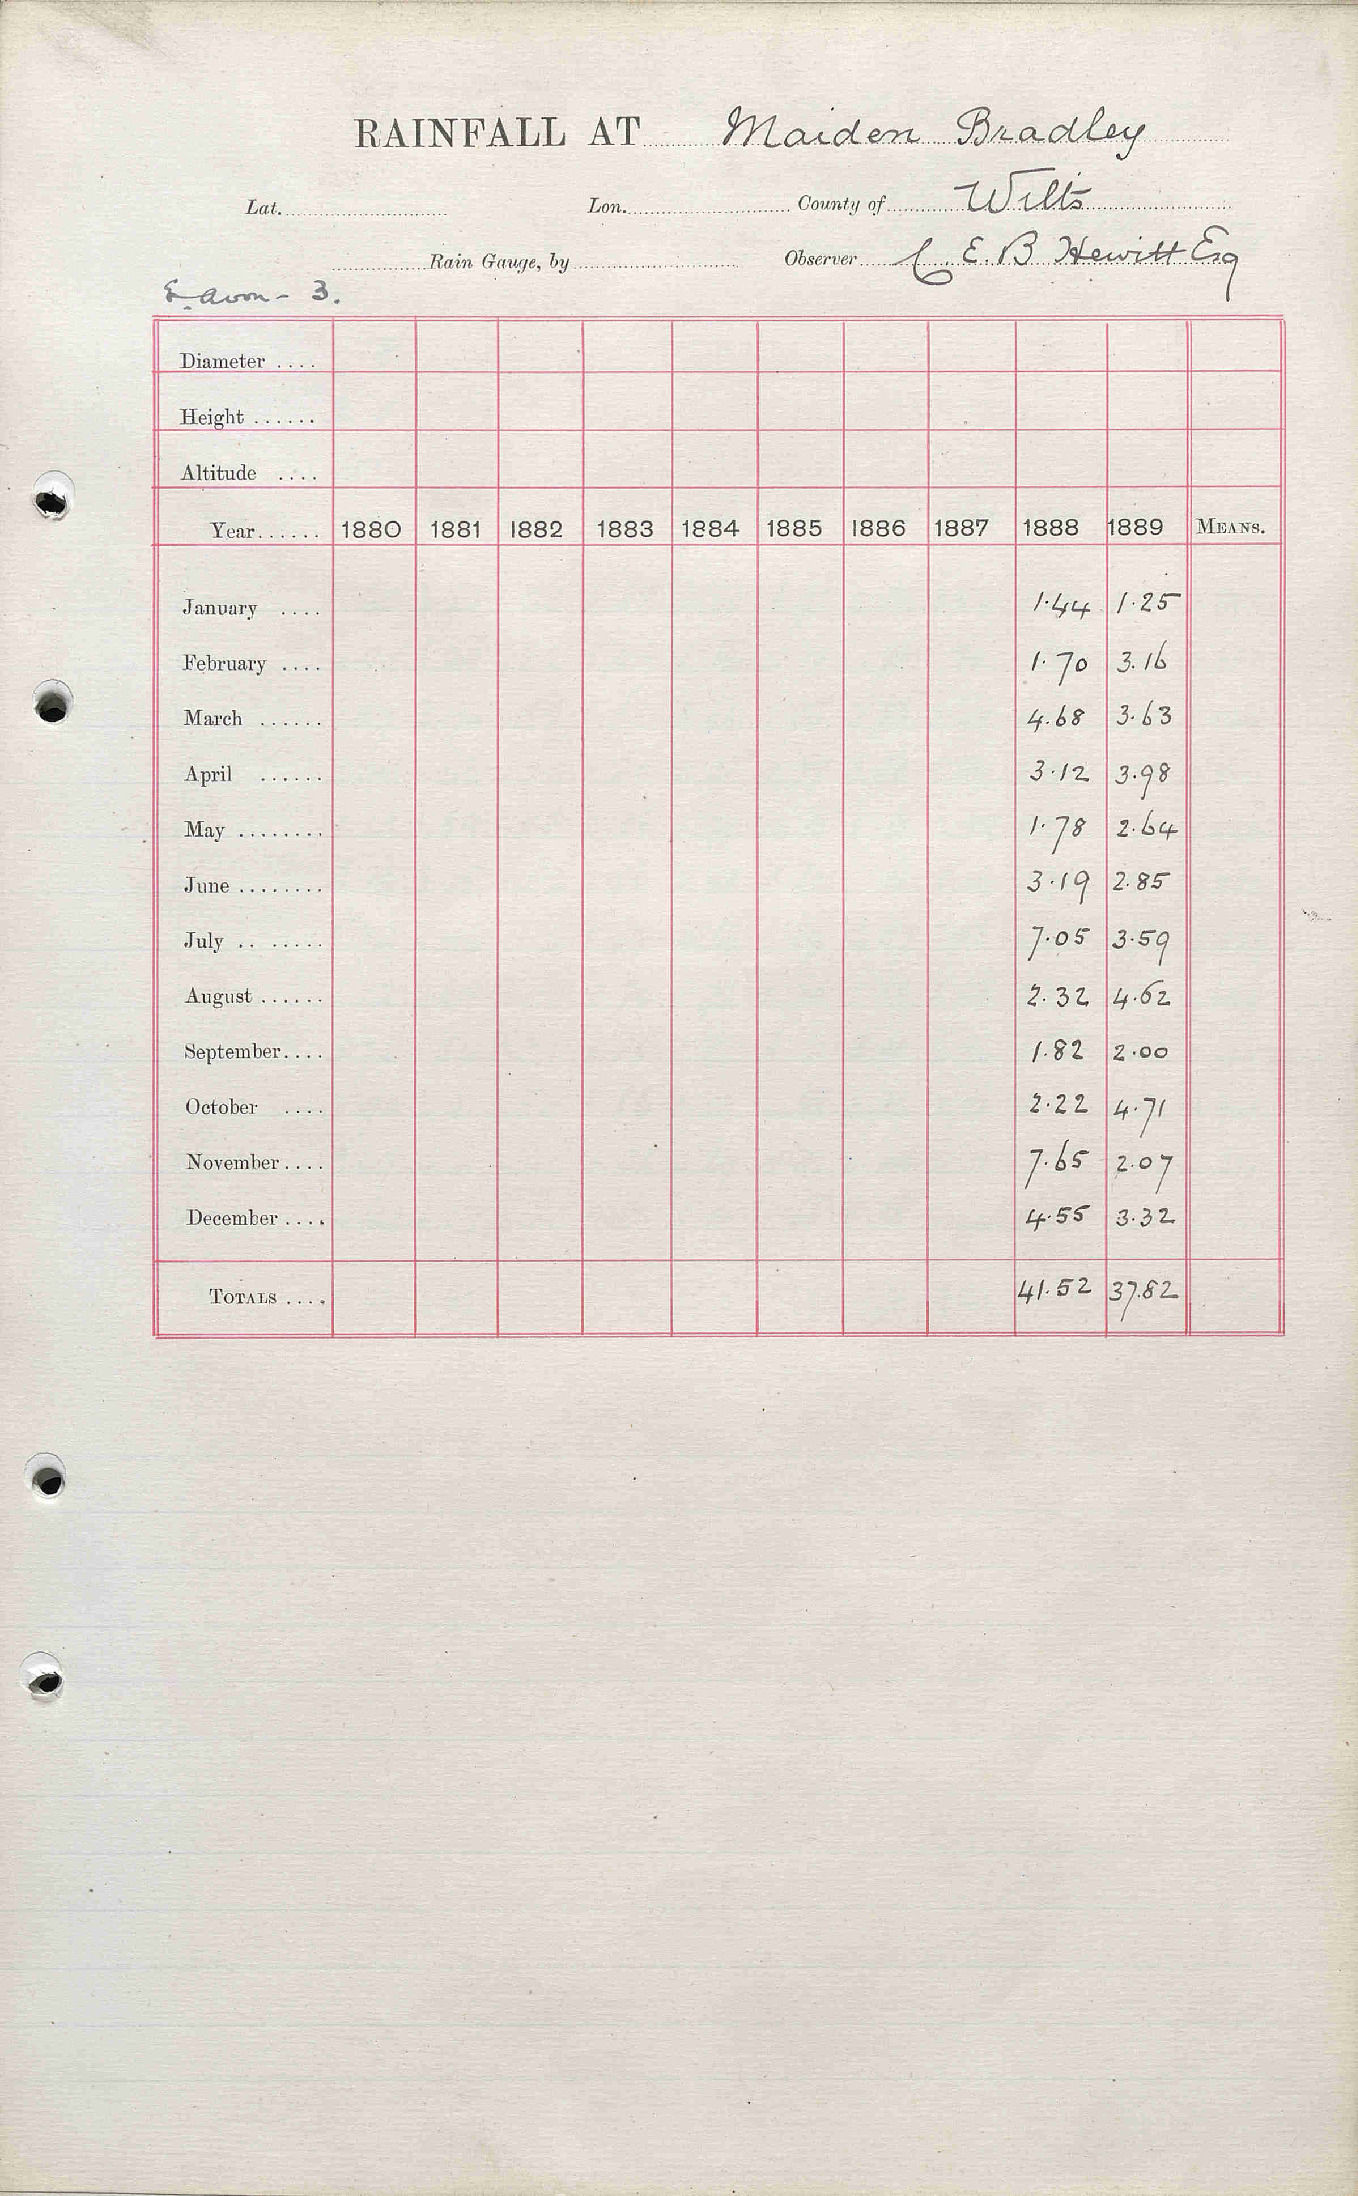 RAINFALL AT Maiden Bradley
Lat. Lon. County of Wilts
Rain Gauge, by Observer C. E. B. Hewitt Esq
E. Avon - 3.
Diameter ....
Height ......
Altitude ....
Year...... 1880 1881 1882 1883 1884 1885 1886 1887 1888 1889 MEANS.
January .... 1.44 1.25
February .... 1.70 3.16
March ...... 4.68 3.63
April ...... 3.12 3.98
May ........ 1.78 2.64
June ........ 3.19 2.85
July .. ..... 7.05 3.59
August ...... 2.32 4.62
September.... 1.82 2.00
October .... 2.22 4.71
November.... 7.65 2.07
December .... 4.55 3.32
TOTALS .... 41.52 37.82